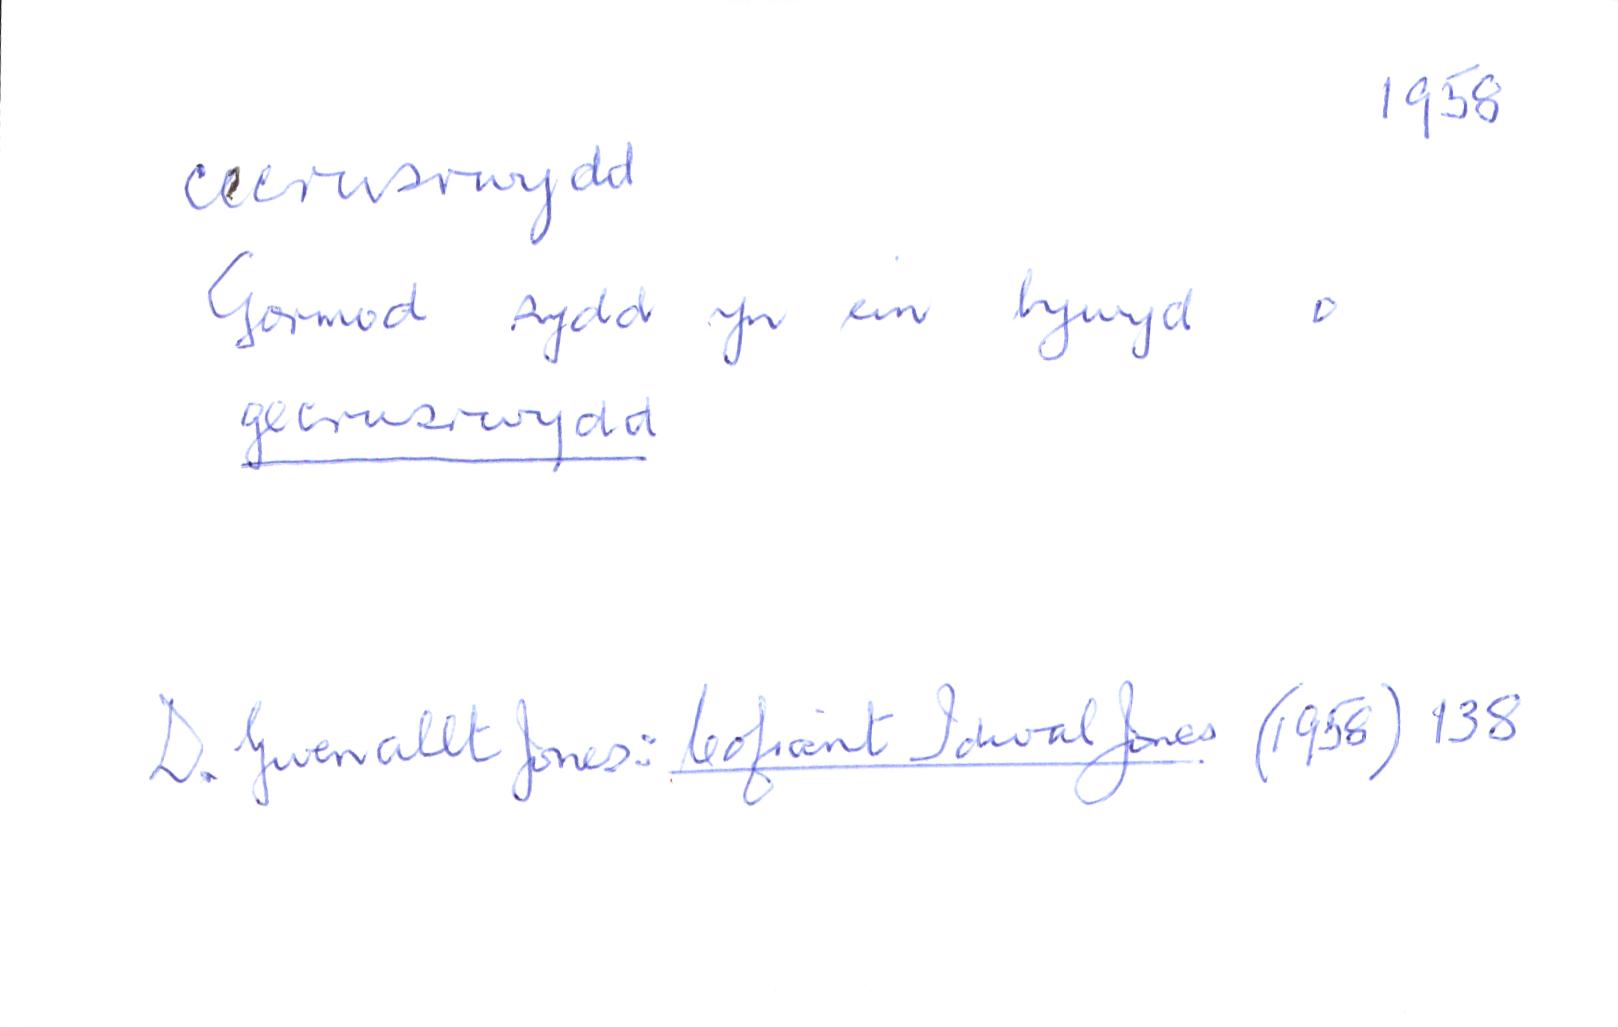 1958
cecrusrwydd
Gormod sydd yn ein bywyd o
gecrusrwydd
D. Gwenallt Jones: Cofiant Idwal Jones (1958) 138